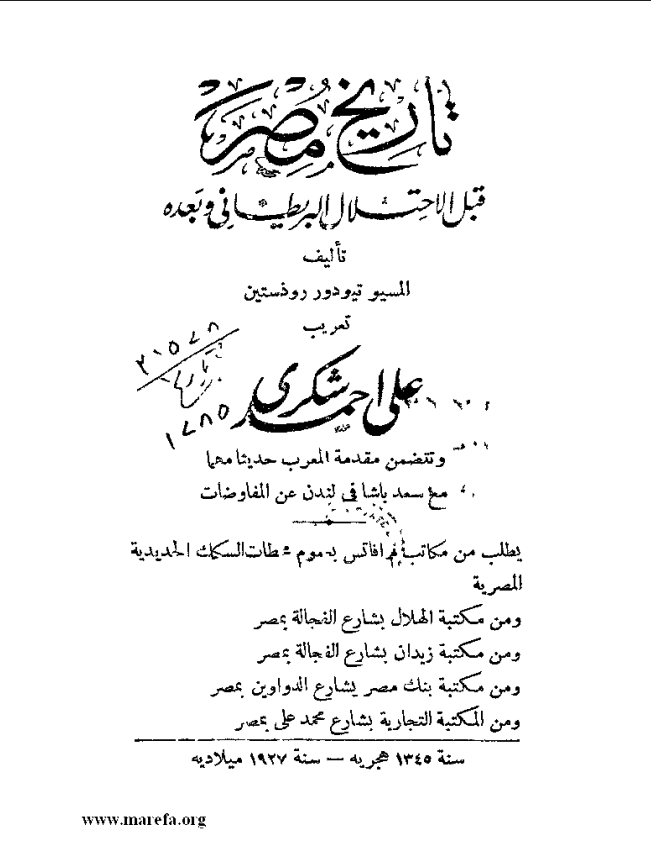 تاريخ مصر
قبل الاحتلال البريطاني وبعده
تأليف
المسيو تيودور روذستين
تعريب
على احمد شكرى
وتتضمن مقدمة المعرب حديثا مهما
مع سعد باشا فى لندن عن المفاوضات
يطلب من مكاتب محطات السكك الحديدية
المصرية
ومن مكتبة الهلال بشارع الفجالة بمصر
ومن مكتبة زيدان بشارع الفجالة بمصر
ومن مكتبة بنك مصر بشارع الدواوين بمصر
ومن المكتبة التجارية بشارع محمد على بمصر
سنة ١٣٤٥ هجريه — سنة ١٩٢٧ ميلاديه
www.marefa.org